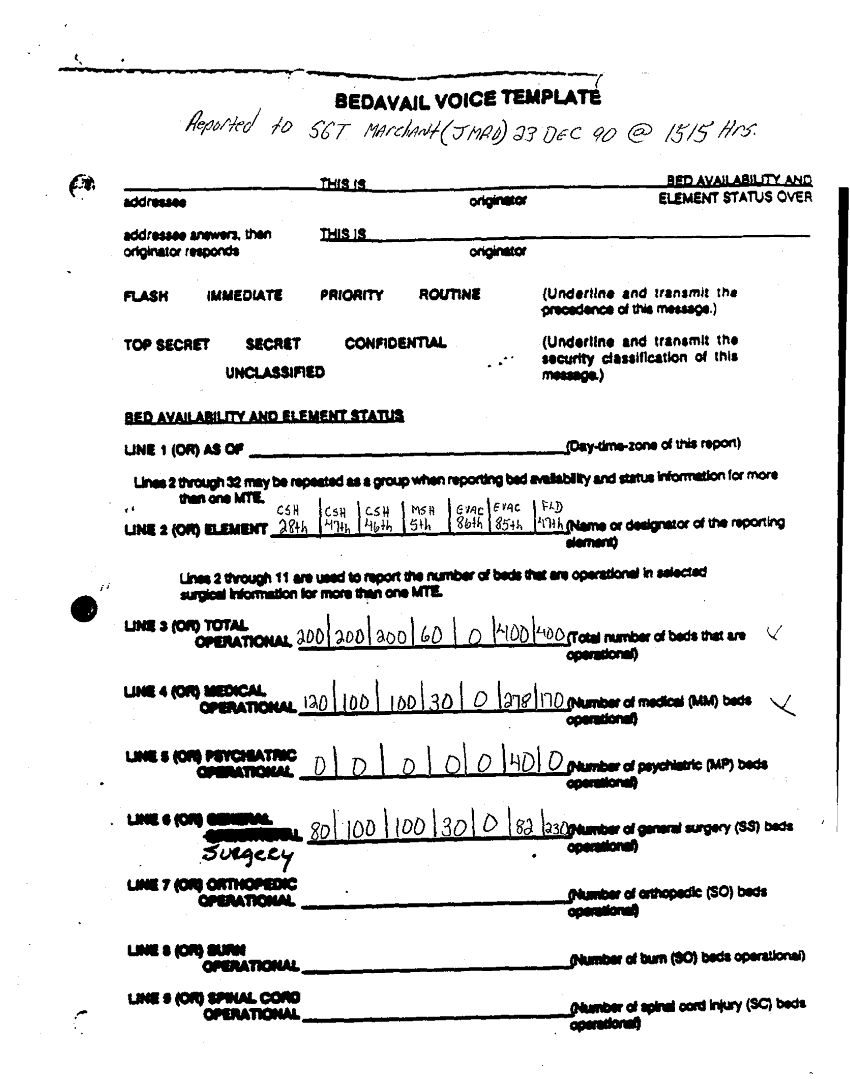 BEDAVAIL VOICE TEMPLATE
Reported to SGT Marchant (JMRO) 23 DEC 90 @ 1515 Hrs.
THIS IS BED AVAILABILITY AND
addressee originator ELEMENT STATUS OVER
addressee answers, then THIS IS
originator responds originator
FLASH IMMEDIATE PRIORITY ROUTINE (Underline and transmit the
precedence of this message.)
TOP SECRET SECRET CONFIDENTIAL (Underline and transmit the
security classification of this
UNCLASSIFIED message.)
BED AVAILABILITY AND ELEMENT STATUS
LINE 1 (OR) AS OF (Day-time-zone of this report)
Lines 2 through 32 may be repeated as a group when reporting bed availability and status information for more
than one MTE.
CSH CSH CSH MSH EVAC EVAC FLD
LINE 2 (OR) ELEMENT 28th 47th 46th 5th 86th 85th 47th (Name or designator of the reporting
element)
Lines 2 through 11 are used to report the number of beds that are operational in selected
surgical information for more than one MTE.
LINE 3 (OR) TOTAL
OPERATIONAL 200 200 200 60 0 400 400 (Total number of beds that are
operational)
LINE 4 (OR) MEDICAL
OPERATIONAL 120 100 100 30 0 278 170 (Number of medical (MM) beds
operational)
LINE 5 (OR) PSYCHIATRIC
OPERATIONAL 0 0 0 0 0 40 0 (Number of psychiatric (MP) beds
operational)
LINE 6 (OR) GENERAL
80 100 100 30 0 82 230 (Number of general surgery (SS) beds
Surgery operational)
LINE 7 (OR) ORTHOPEDIC
OPERATIONAL (Number of orthopedic (SO) beds
operational)
LINE 8 (OR) BURN
OPERATIONAL (Number of burn (SO) beds operational)
LINE 9 (OR) SPINAL CORD
OPERATIONAL (Number of spinal cord injury (SC) beds
operational)